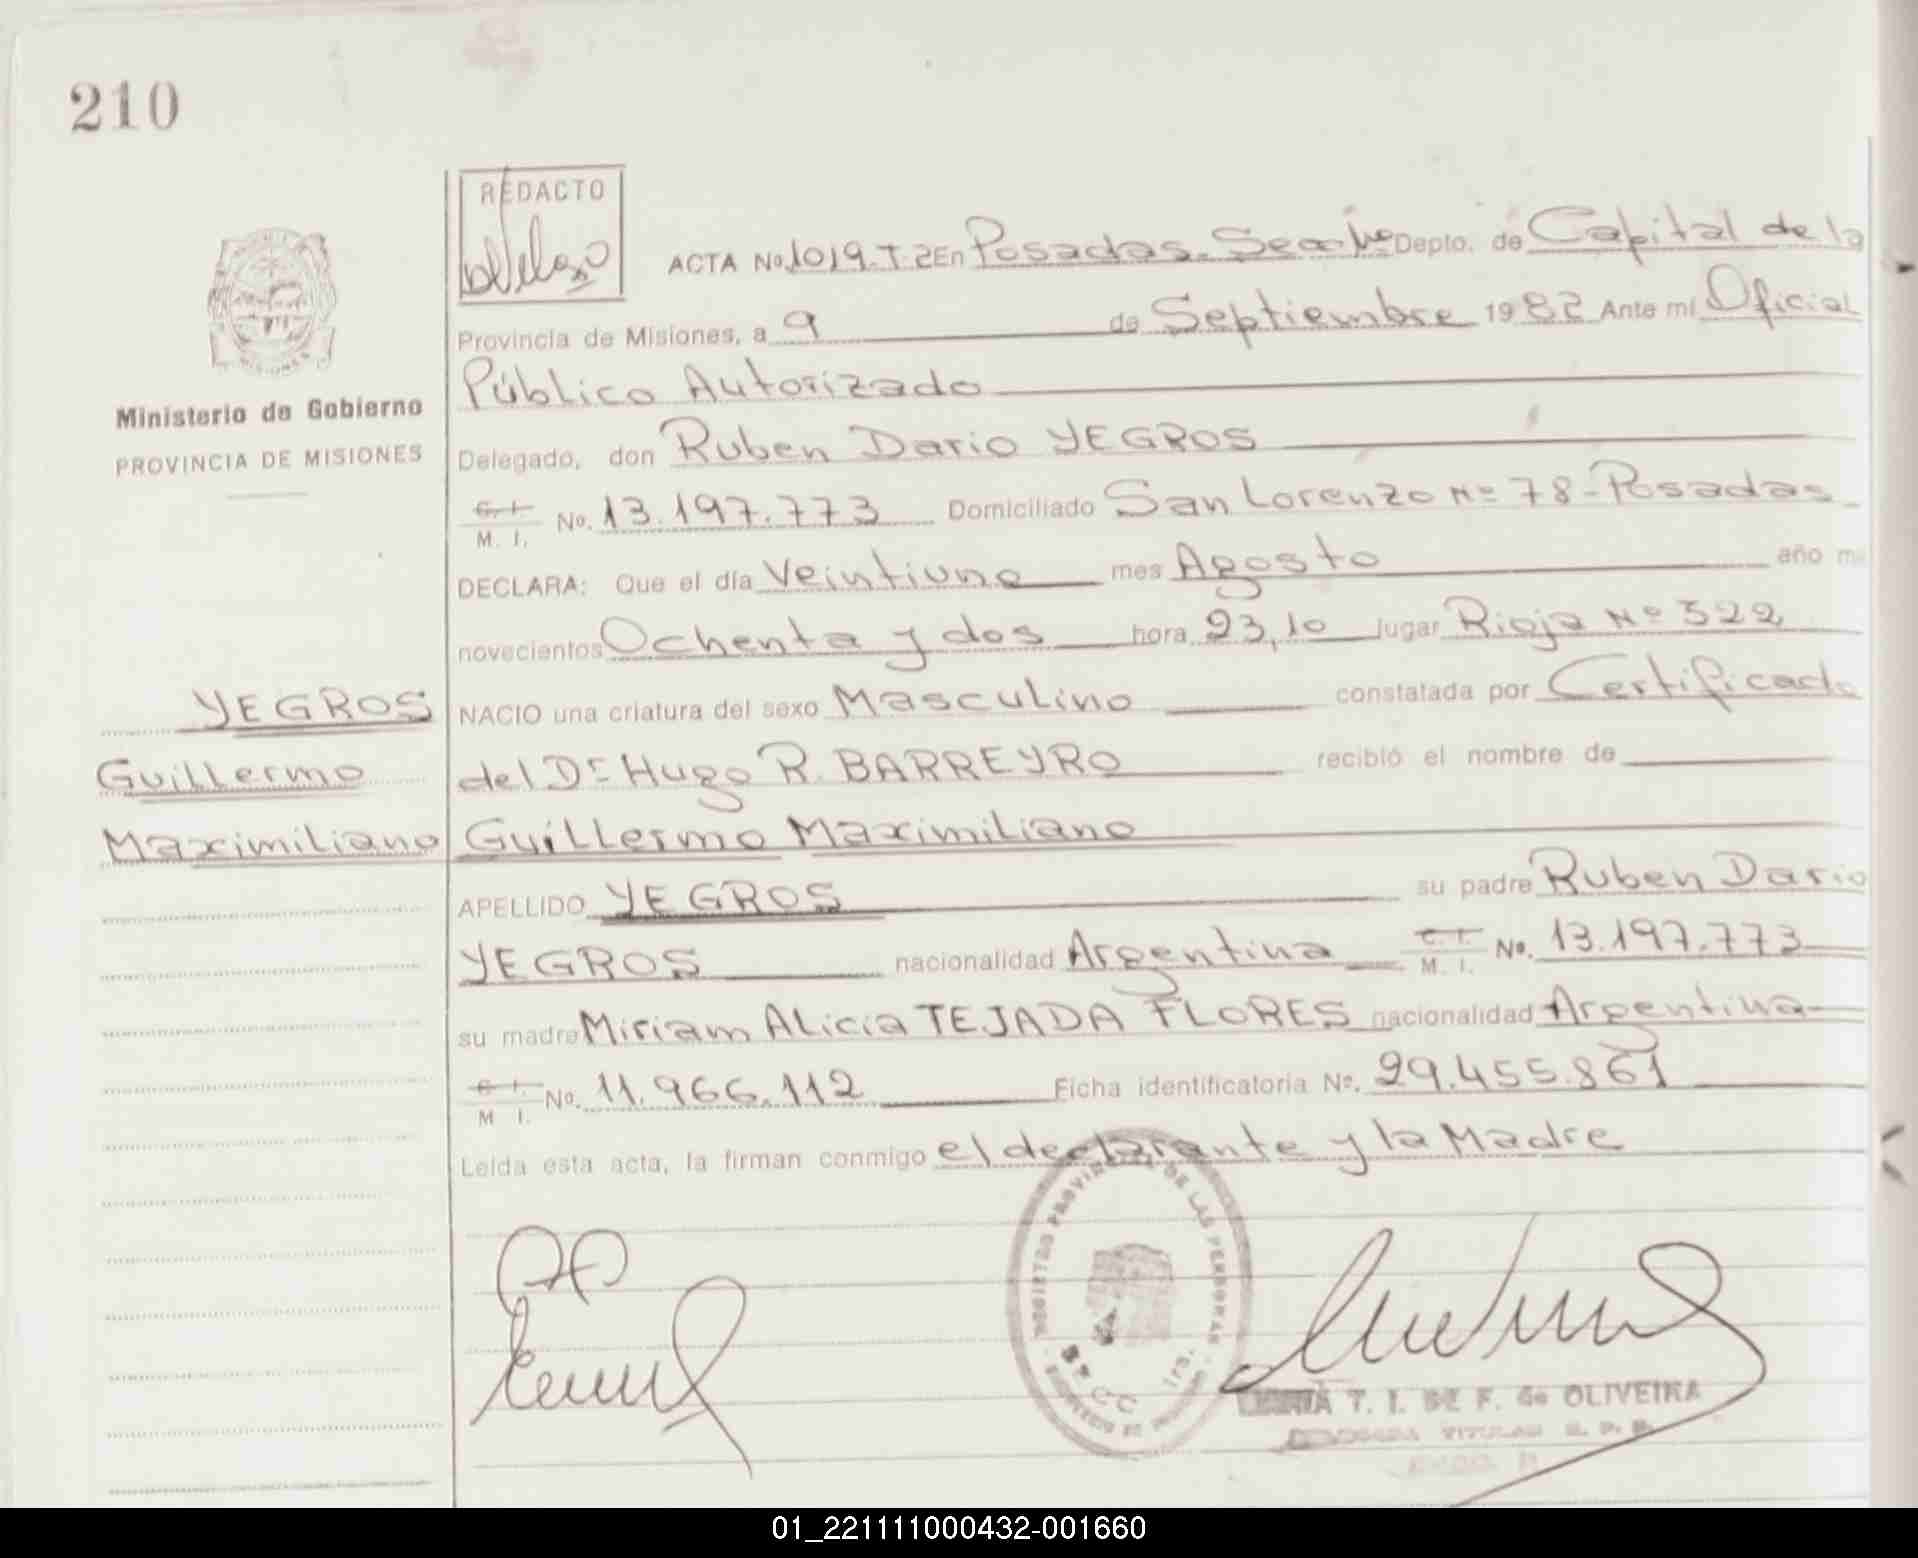 210
REDACTO
ACTA No. 1019.T.2 En Posadas. Depto. de Capital de la
Provincia de Misiones, a 9 de Septiembre 1982 Ante mí Oficial
Público Autorizado
Ministerio de Gobierno
PROVINCIA DE MISIONES
Delegado, don Ruben Dario YEGROS
C. I.
M. I. No. 13.197.773 Domiciliado San Lorenzo Nº 78-Posadas
DECLARA: Que el día Veintiuno mes Agosto año mil
novecientos Ochenta y dos hora 23,10 lugar Rioja Nº 322
YEGROS
Guillermo
Maximiliano
NACIO una criatura del sexo Masculino constatada por Certificado
del Dr Hugo R. BARREYRO recibió el nombre de
Guillermo Maximiliano
APELLIDO YEGROS su padre Ruben Dario
YEGROS nacionalidad Argentina C. I. M. I. No. 13.197.773
su madre Miriam Alicia TEJADA FLORES nacionalidad Argentina
C. I.
M I. No. 11.966.112 Ficha identificatoria Nº. 29.455.861
Leída esta acta, la firman conmigo el declarante y la Madre
REGISTRO PROVINCIAL DE LAS PERSONAS
T. I. DE F. de OLIVEIRA
01_221111000432-001660